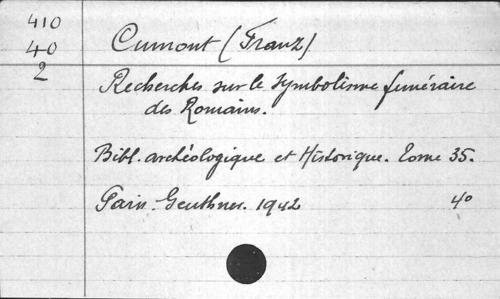 410
40
2
Cumont (Franz)
Recherches sur le symbolisme funéraire
des Romains.
Bibl. archéologique et Historique. Tome 35.
Paris. Geuthner. 1942 4°